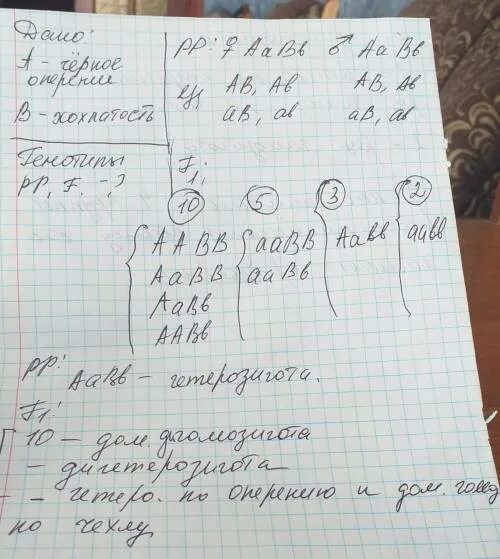 Дано:
A - чёрное
оперение
B - хохлатость
Генотипы
PP, F₁ - ?
PP: ♀ AaBb ♂ AaBb
AB, Ab AB, Ab
aB, ab aB, ab
F₁:
10 5 3 2
AABB aaBB Aabb aabb
AaBB aaBb
AaBb
AABb
PP:
AaBb - гетерозигота.
F₁:
10 - дом. дигомозигота
- дигетерозигота
- гетеро. по оперению и дом.
по